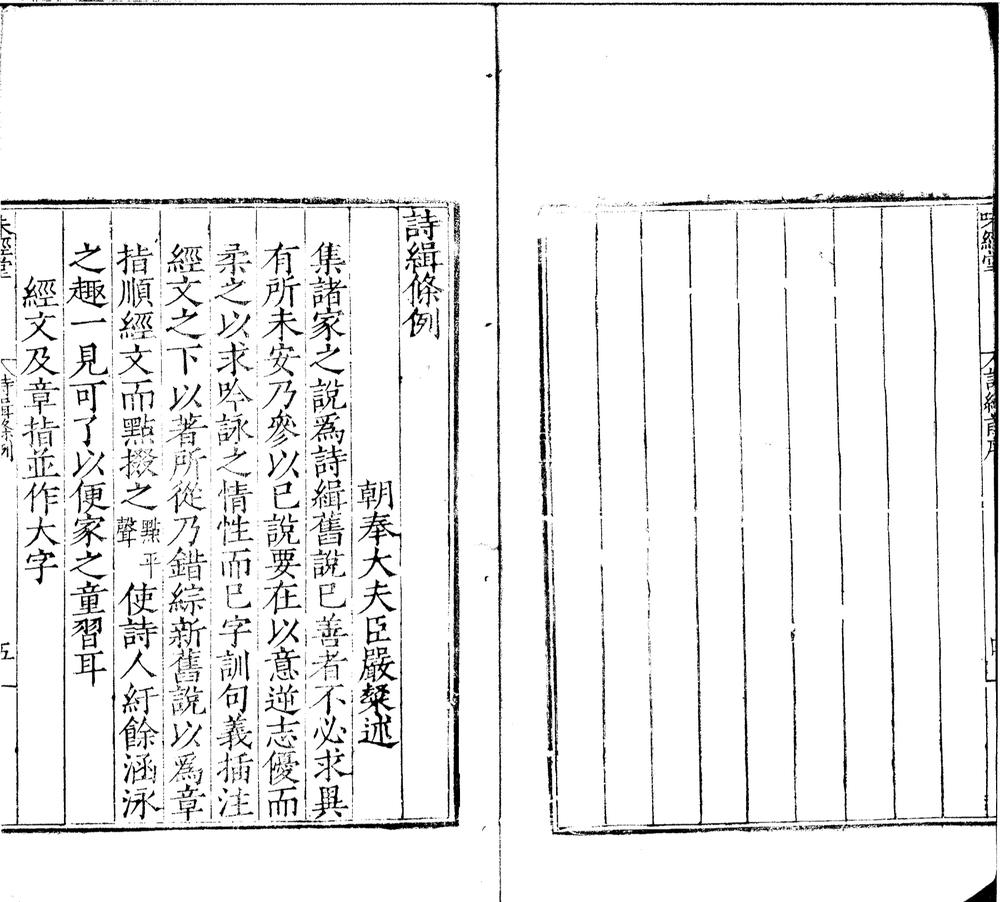 味經堂
詩緝前序
詩緝條例
朝奉大夫臣嚴粲述
集諸家之說爲詩緝舊說已善者不必求異
有所未安乃參以己說要在以意逆志優而
柔之以求吟詠之情性而已字訓句義插注
經文之下以著所從乃錯綜新舊說以爲章
指順經文而點掇之點平聲使詩人紆餘涵泳
之趣一見可了以便家之童習耳
經文及章指並作大字
味經堂
詩緝條例
五